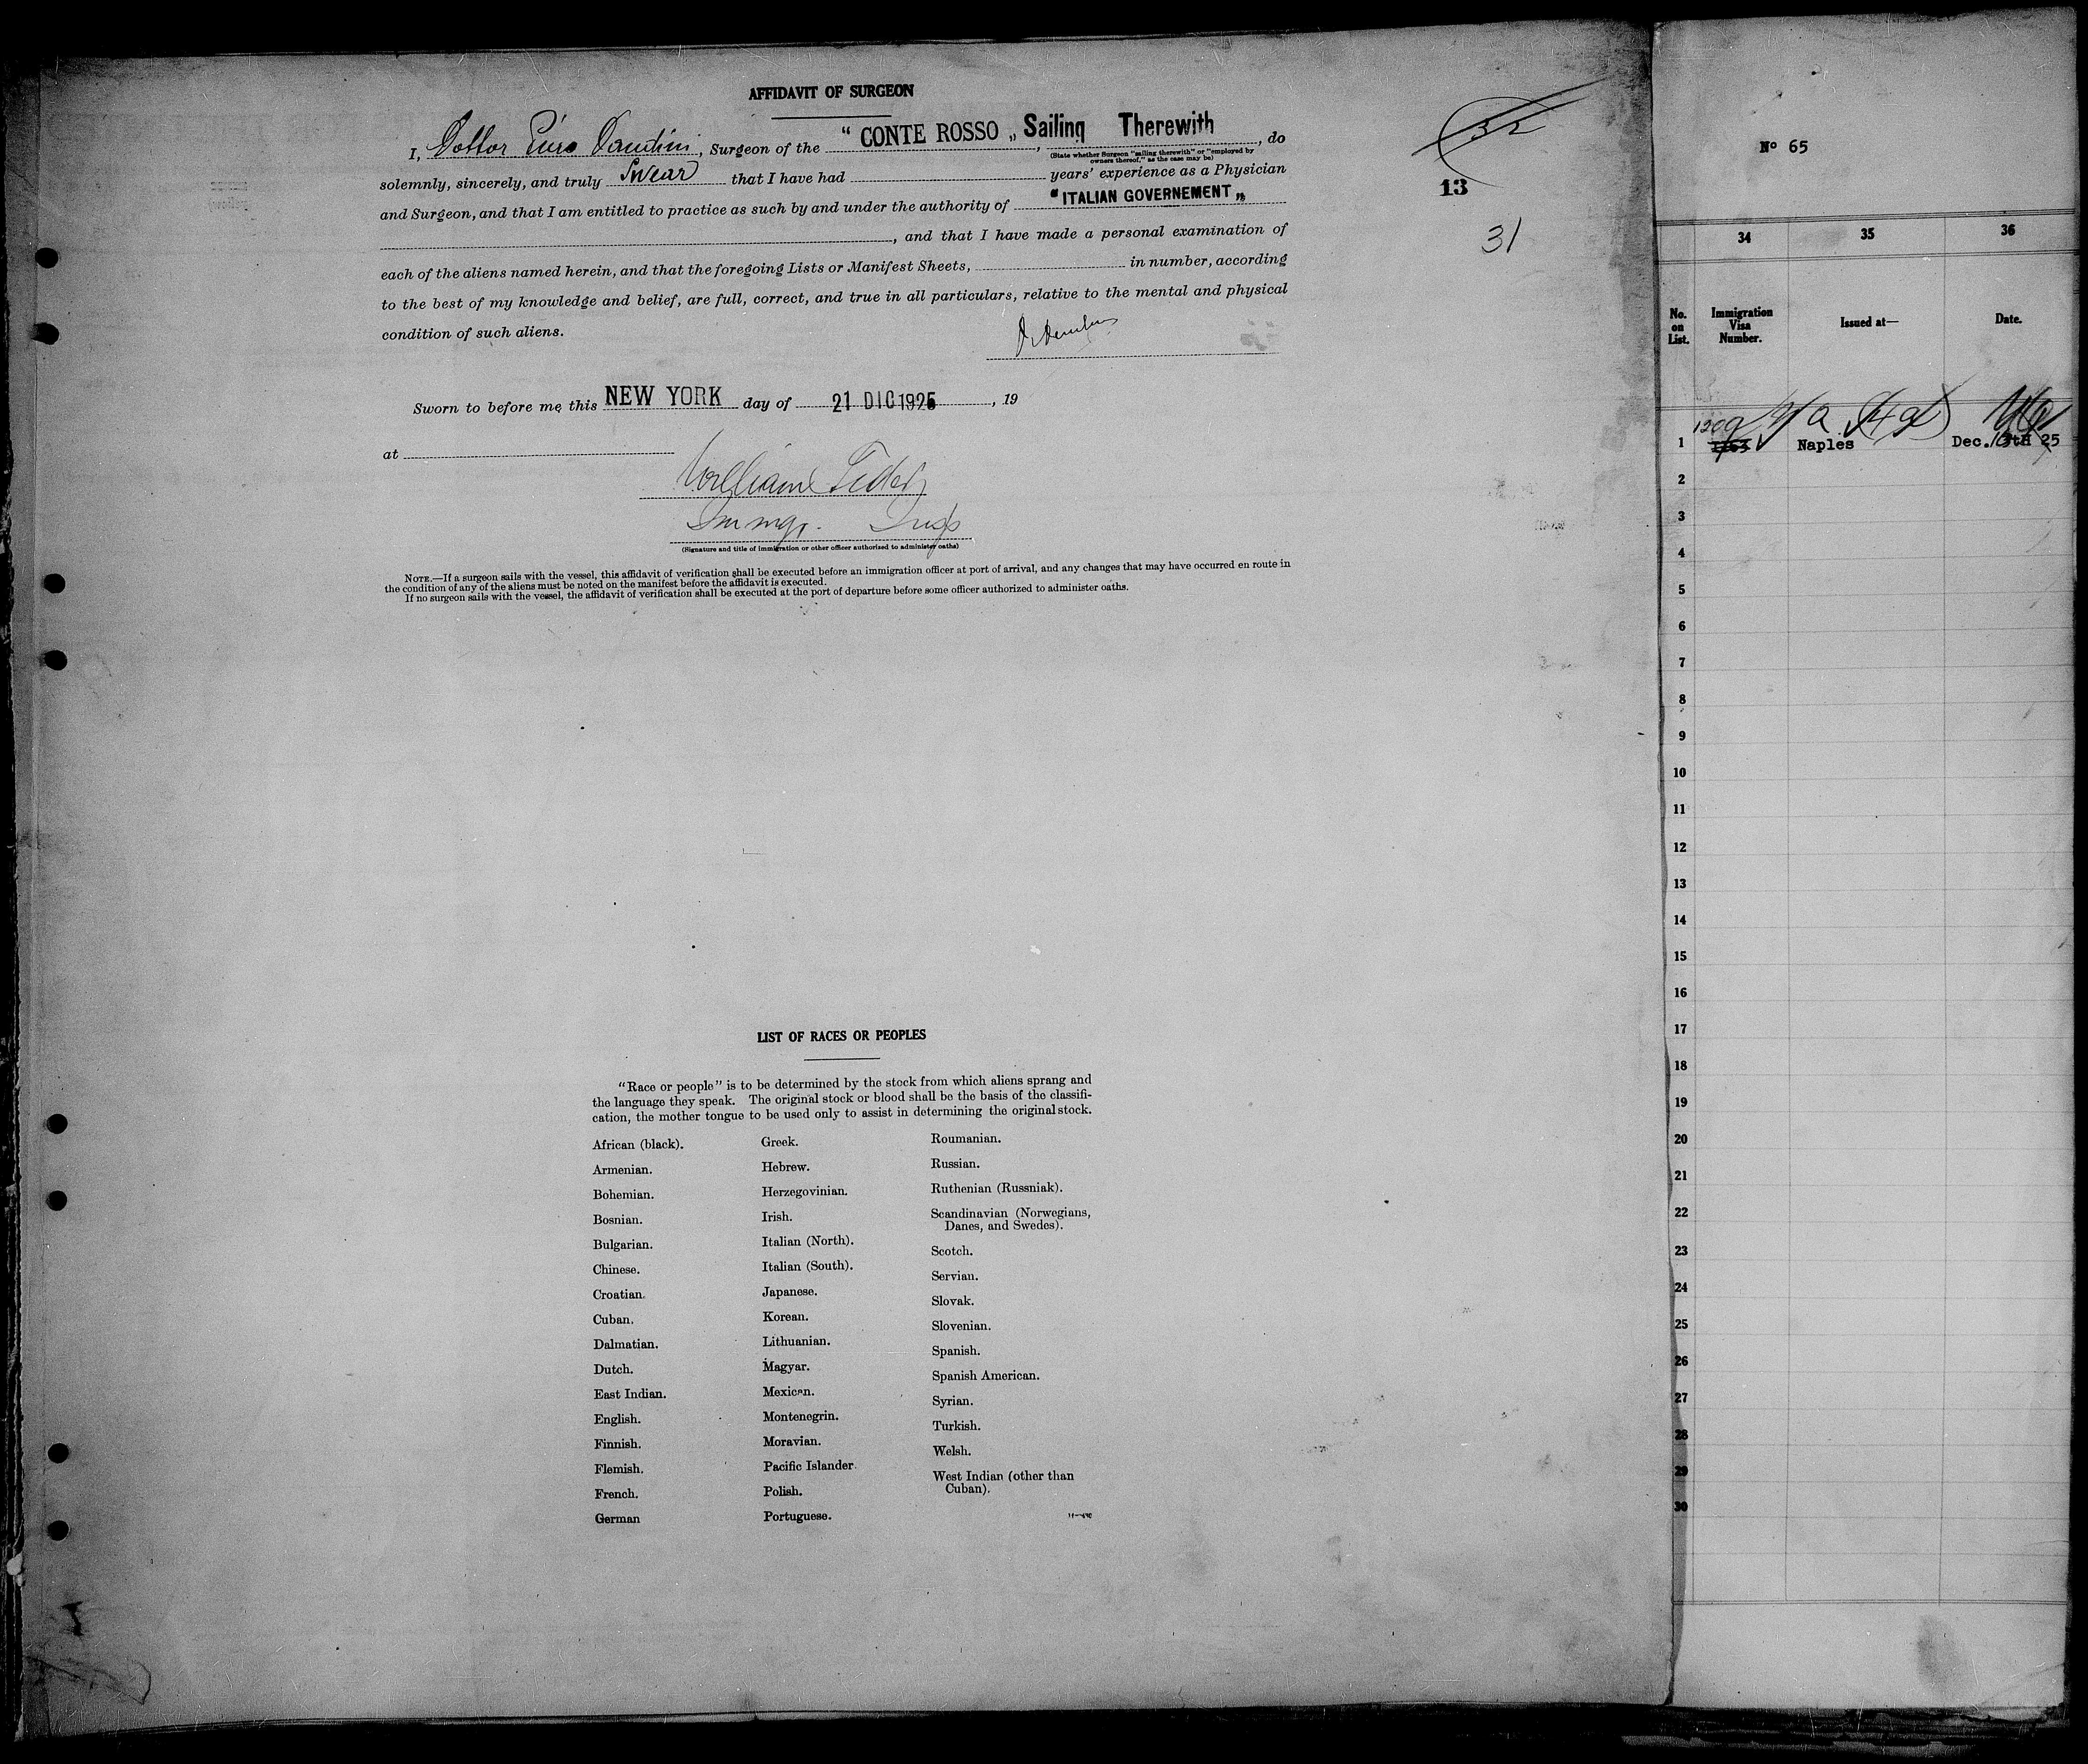 AFFIDAVIT OF SURGEON
I, Dottor Piero Dandini, Surgeon of the "CONTE ROSSO", Sailing Therewith, do
(State whether Surgeon "sailing therewith" or "employed by
owners thereof," as the case may be)
solemnly, sincerely, and truly Swear that I have had years' experience as a Physician
and Surgeon, and that I am entitled to practice as such by and under the authority of "ITALIAN GOVERNEMENT"
, and that I have made a personal examination of
each of the aliens named herein, and that the foregoing Lists or Manifest Sheets, in number, according
to the best of my knowledge and belief, are full, correct, and true in all particulars, relative to the mental and physical
condition of such aliens.
32
13
31
Sworn to before me this NEW YORK day of 21 DIC 1925, 19
at
William
Immgr. Insp
(Signature and title of immigration or other officer authorized to administer oaths)
NOTE.—If a surgeon sails with the vessel, this affidavit of verification shall be executed before an immigration officer at port of arrival, and any changes that may have occurred en route in
the condition of any of the aliens must be noted on the manifest before the affidavit is executed.
If no surgeon sails with the vessel, the affidavit of verification shall be executed at the port of departure before some officer authorized to administer oaths.
LIST OF RACES OR PEOPLES
"Race or people" is to be determined by the stock from which aliens sprang and
the language they speak. The original stock or blood shall be the basis of the classifi-
cation, the mother tongue to be used only to assist in determining the original stock.
African (black).
Armenian.
Bohemian.
Bosnian.
Bulgarian.
Chinese.
Croatian.
Cuban.
Dalmatian.
Dutch.
East Indian.
English.
Finnish.
Flemish.
French.
German
Greek.
Hebrew.
Herzegovinian.
Irish.
Italian (North).
Italian (South).
Japanese.
Korean.
Lithuanian.
Magyar.
Mexican.
Montenegrin.
Moravian.
Pacific Islander.
Polish.
Portuguese.
Roumanian.
Russian.
Ruthenian (Russniak).
Scandinavian (Norwegians,
Danes, and Swedes).
Scotch.
Servian.
Slovak.
Slovenian.
Spanish.
Spanish American.
Syrian.
Turkish.
Welsh.
West Indian (other than
Cuban).
Nº 65
34 35 36
No.
on
List.
Immigration
Visa
Number.
Issued at—
Date.
1209
1 Naples Dec. 25
2
3
4
5
6
7
8
9
10
11
12
13
14
15
16
17
18
19
20
21
22
23
24
25
26
27
28
29
30